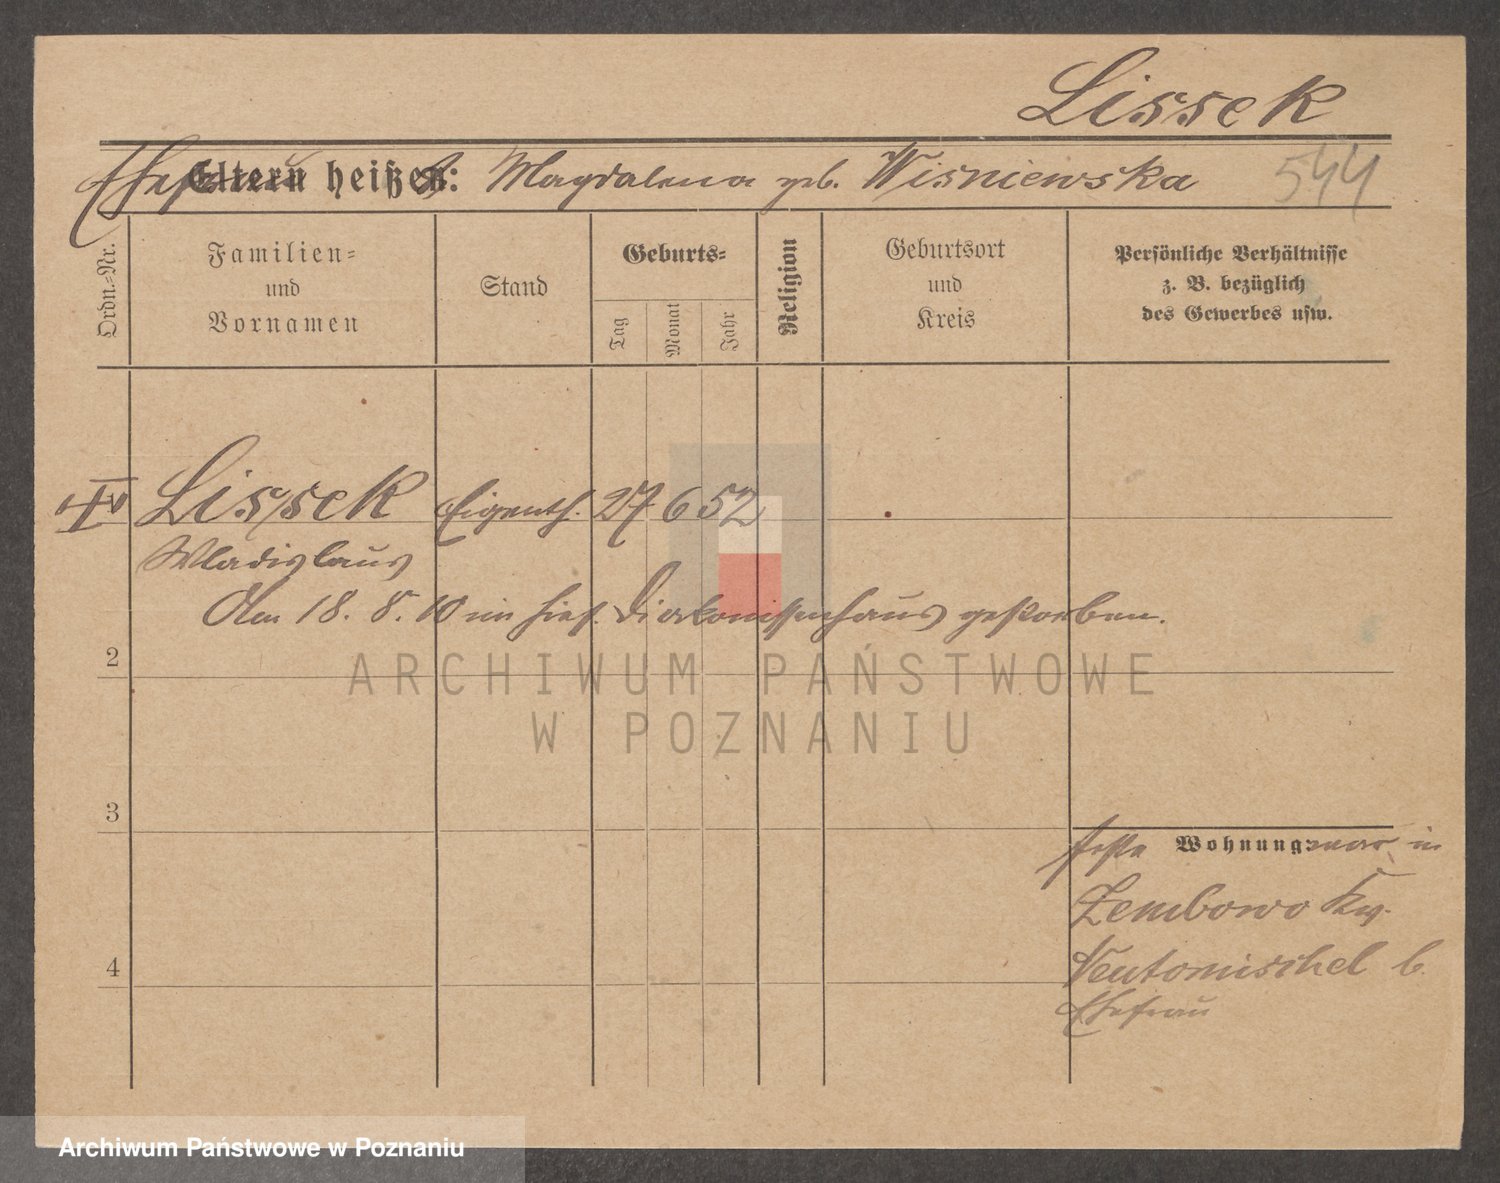 Lissek
Ehefrau Eltern heißen: Magdalena geb. Wisniewska
544
Ordn.-Nr.
Familien=
und
Vornamen
Stand
Geburts=
Tag
Monat
Jahr
Religion
Geburtsort
und
Kreis
Persönliche Verhältnisse
z. B. bezüglich
des Gewerbes usw.
Lissek Eigenth. 27 6 52
Wladislaus
Am 18. 8. 10 im hies. Diakonissenhaus gestorben.
ARCHIWUM PAŃSTWOWE
W POZNANIU
2
3
feste Wohnung: war in
Zembowo Kr.
4
Neutomischel b.
Ehefrau
Archiwum Państwowe w Poznaniu